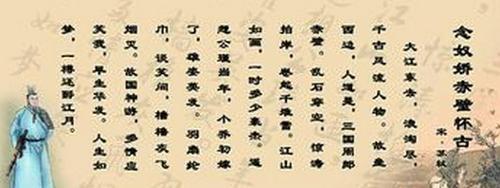 念奴娇赤壁怀古
宋·苏轼
大江东去，浪淘尽，
千古风流人物。故垒
西边，人道是，三国周郎
赤壁。乱石穿空，惊涛
拍岸，卷起千堆雪。江山
如画，一时多少豪杰。遥
想公瑾当年，小乔初嫁
了，雄姿英发。羽扇纶
巾，谈笑间，樯橹灰飞
烟灭。故国神游，多情应
笑我，早生华发。人生如
梦，一樽还酹江月。